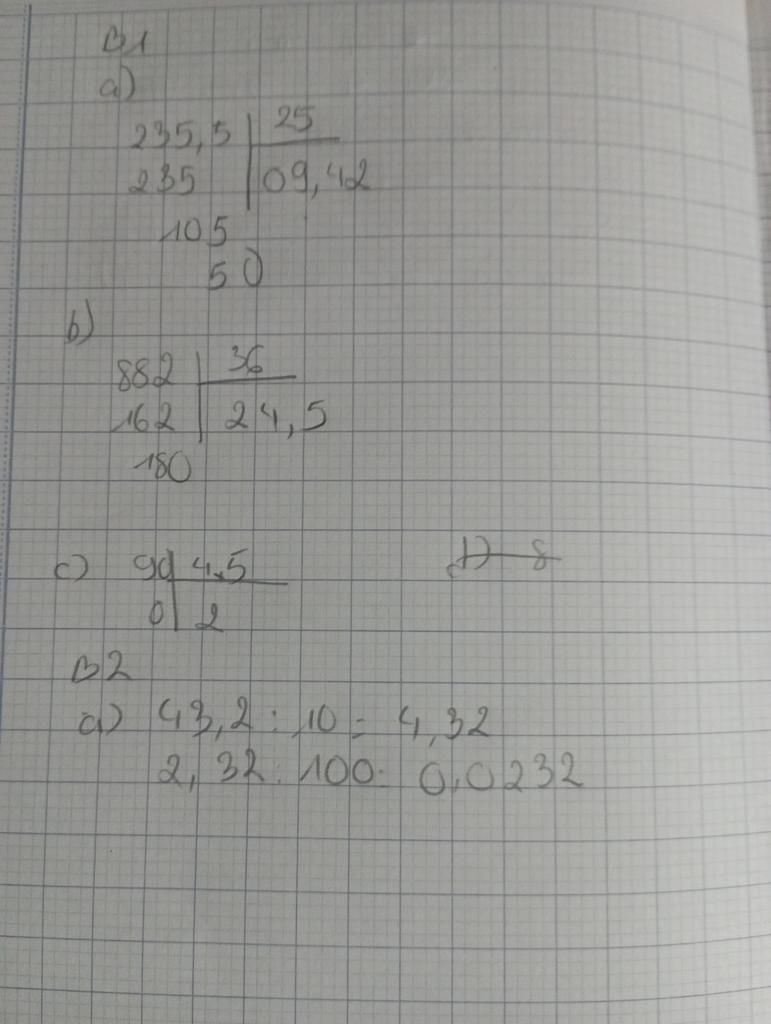 B1
a)
235,5 | 25
235 | 09,42
105
50
b)
882 | 36
162 | 24,5
180
c) 90 | 4,5
0 | 2
B2
a) 43,2 : 10 = 4,32
2,32 : 100 = 0,0232